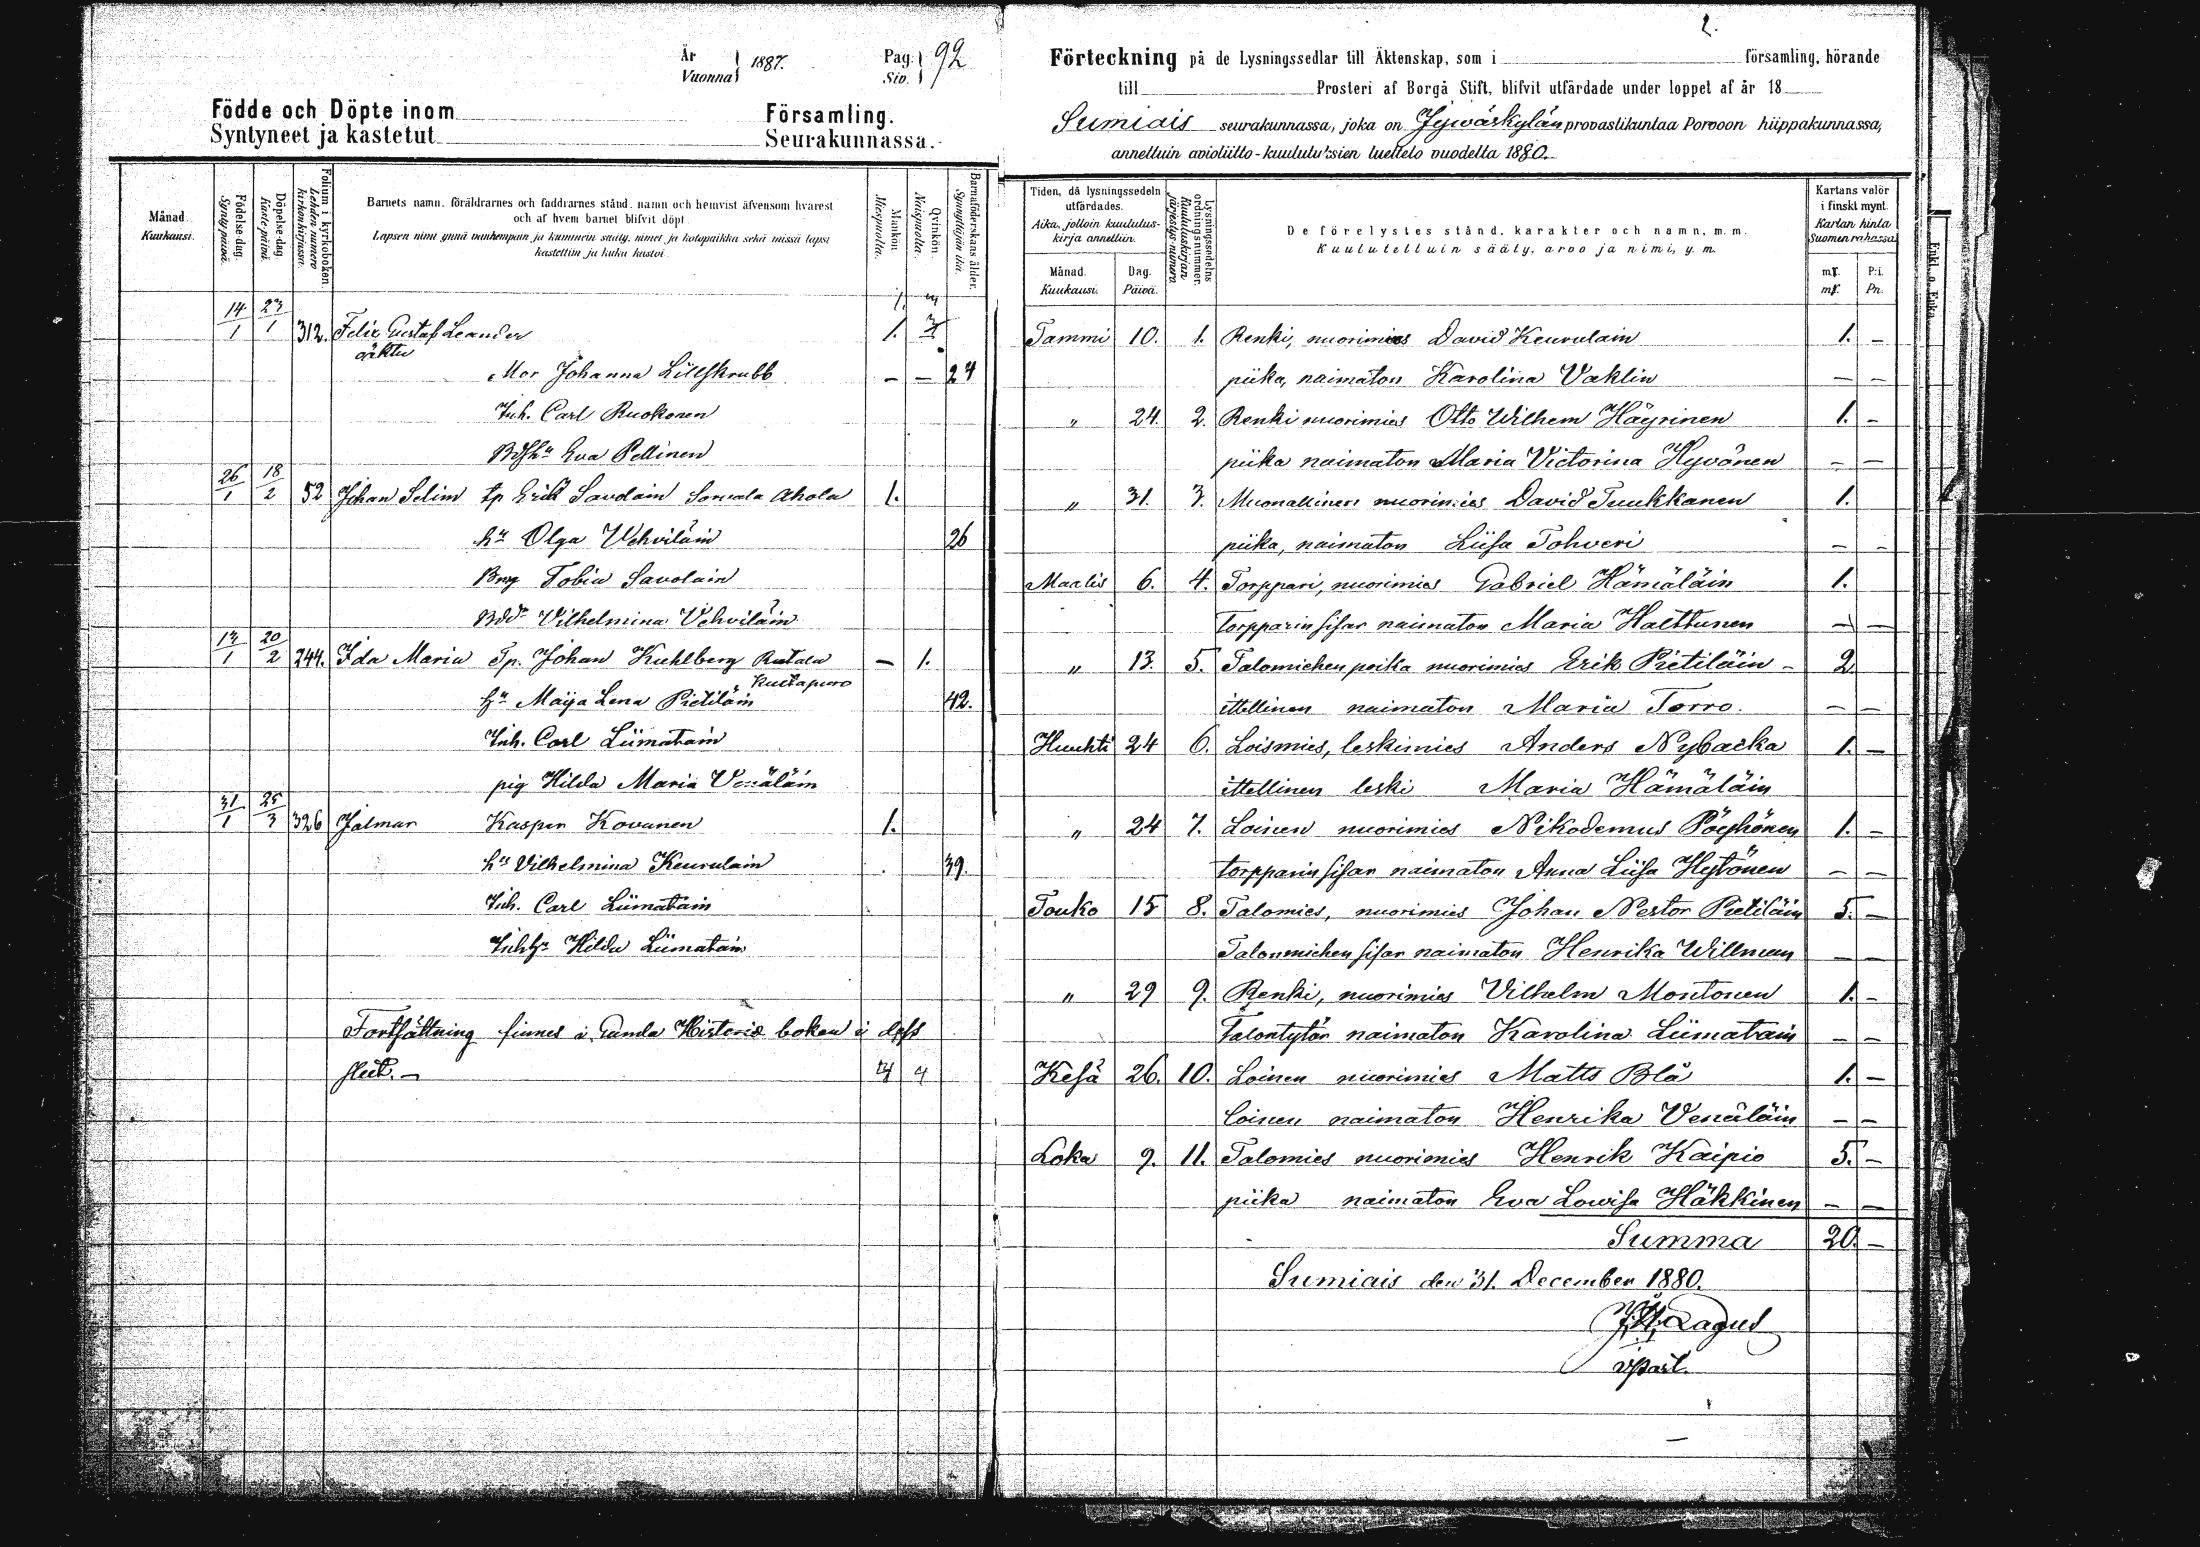 År
Vuonna } 1887. Pag. Siv. } 92
Födde och Döpte inom Församling.
Syntyneet ja kastetut Seurakunnassa.
Månad. Kuukausi.
Födelse-dag. Syntypäivä.
Döpelse-dag. Kastepäivä.
Folium i kyrkoboken. Lehden numero kirkonkirjassa.
Barnets namn, föräldrarnes och faddrarnes stånd, namn och hemvist äfvensom hvarest
och af hvem barnet blifvit döpt.
Lapsen nimi ynnä vanhempain ja kummein sääty, nimet ja kotopaikka sekä missä lapsi
kastettiin ja kuka kastoi.
Mankön. Miespuolia.
Qvinkön. Naispuolia.
Barnaföderskans ålder. Synnyttäjän ikä.
14/1 23/1 312. Felix Gustaf Leander 1.
oäkta
Mor Johanna Lillskrubb — — 24
Inh. Carl Ruokonen
Eva Pellinen
26/1 18/2 52 Johan Selim tp Erik Savolain Sorvala Ahola 1.
hu Olga Vehviläin 26
Tobias Savolain
Vilhelmina Vehviläin
13/1 20/2 244. Ida Maria Tp. Johan Kuhlberg Rutalu — 1.
Kustapuro
hu Maija Lena Pietiläin 42.
Inh. Carl Liimatain
pig Hilda Maria Venäläin
31/1 25/3 326 Jalmar Kasper Kovanen 1.
hu Vilhelmina Keurulain 39.
Inh. Carl Liimatain
Hilda Liimatain
Fortsättning finnes i Gamla Historie boken i dess
slut. —
2.
Förteckning på de Lysningssedlar till Äktenskap, som i församling, hörande
till Prosteri af Borgå Stift, blifvit utfärdade under loppet af år 18
Sumiais seurakunnassa, joka on Jywäskylän provastikuntaa Porvoon hiippakunnassa,
annettuin avioliitto-kuulutuksien luettelo vuodelta 1880.
Tiden, då lysningssedeln utfärdades.
Aika, jolloin kuulutuskirja annettiin.
Månad. Kuukausi.
Dag. Päivä.
Lysningssedelns ordningsnummer. Kuulutuskirjan järjestys-numero
De förelystes stånd, karakter och namn, m. m.
Kuulutettuin sääty, arvo ja nimi, y. m.
Kartans valör i finskt mynt.
Kartan hinta Suomen rahassa.
mk. P:i.
mk. Pn.
Enkl. o. Enka.
Tammi 10. 1. Renki, nuorimies David Keurulain 1. —
piika, naimaton Karolina Vaklin — —
" 24. 2. Renki nuorimies Otto Wilhem Häyrinen 1. —
piika naimaton Maria Victorina Hyvönen — —
" 31. 3. Muonallinen nuorimies David Tuukkanen 1.
piika, naimaton Liisa Tohveri — —
Maalis 6. 4. Torppari, nuorimies Gabriel Hämäläin 1.
torpparin sisar naimaton Maria Halttunen — —
" 13. 5. Talomiehen poika nuorimies Erik Pietiläin — 2
ittellinen naimaton Maria Torro. — —
Huuhti 24 6. Loismies, leskimies Anders Nybacka 1. —
ittellinen leski Maria Hämäläin
" 24 7. Loinen nuorimies Nikodemus Pöyhönen 1. —
torpparin sisar naimaton Anna Liisa Hytönen — —
Touko 15 8. Talomies, nuorimies Johan Nestor Pietiläin 5. —
Talonmiehen sisar naimaton Henrika Willman — —
" 29 9. Renki, nuorimies Vilhelm Montonen 1. —
Talontytär naimaton Karolina Liimatain — —
Kesä 26. 10. Loinen nuorimies Matts Blå 1. —
loinen naimaton Henrika Venäläin — —
Loka 9. 11. Talomies nuorimies Henrik Kaipio 5. —
piika naimaton Eva Lowisa Häkkinen — —
Summa 20. —
Sumiais den 31. December 1880.
Lagus
vpast.